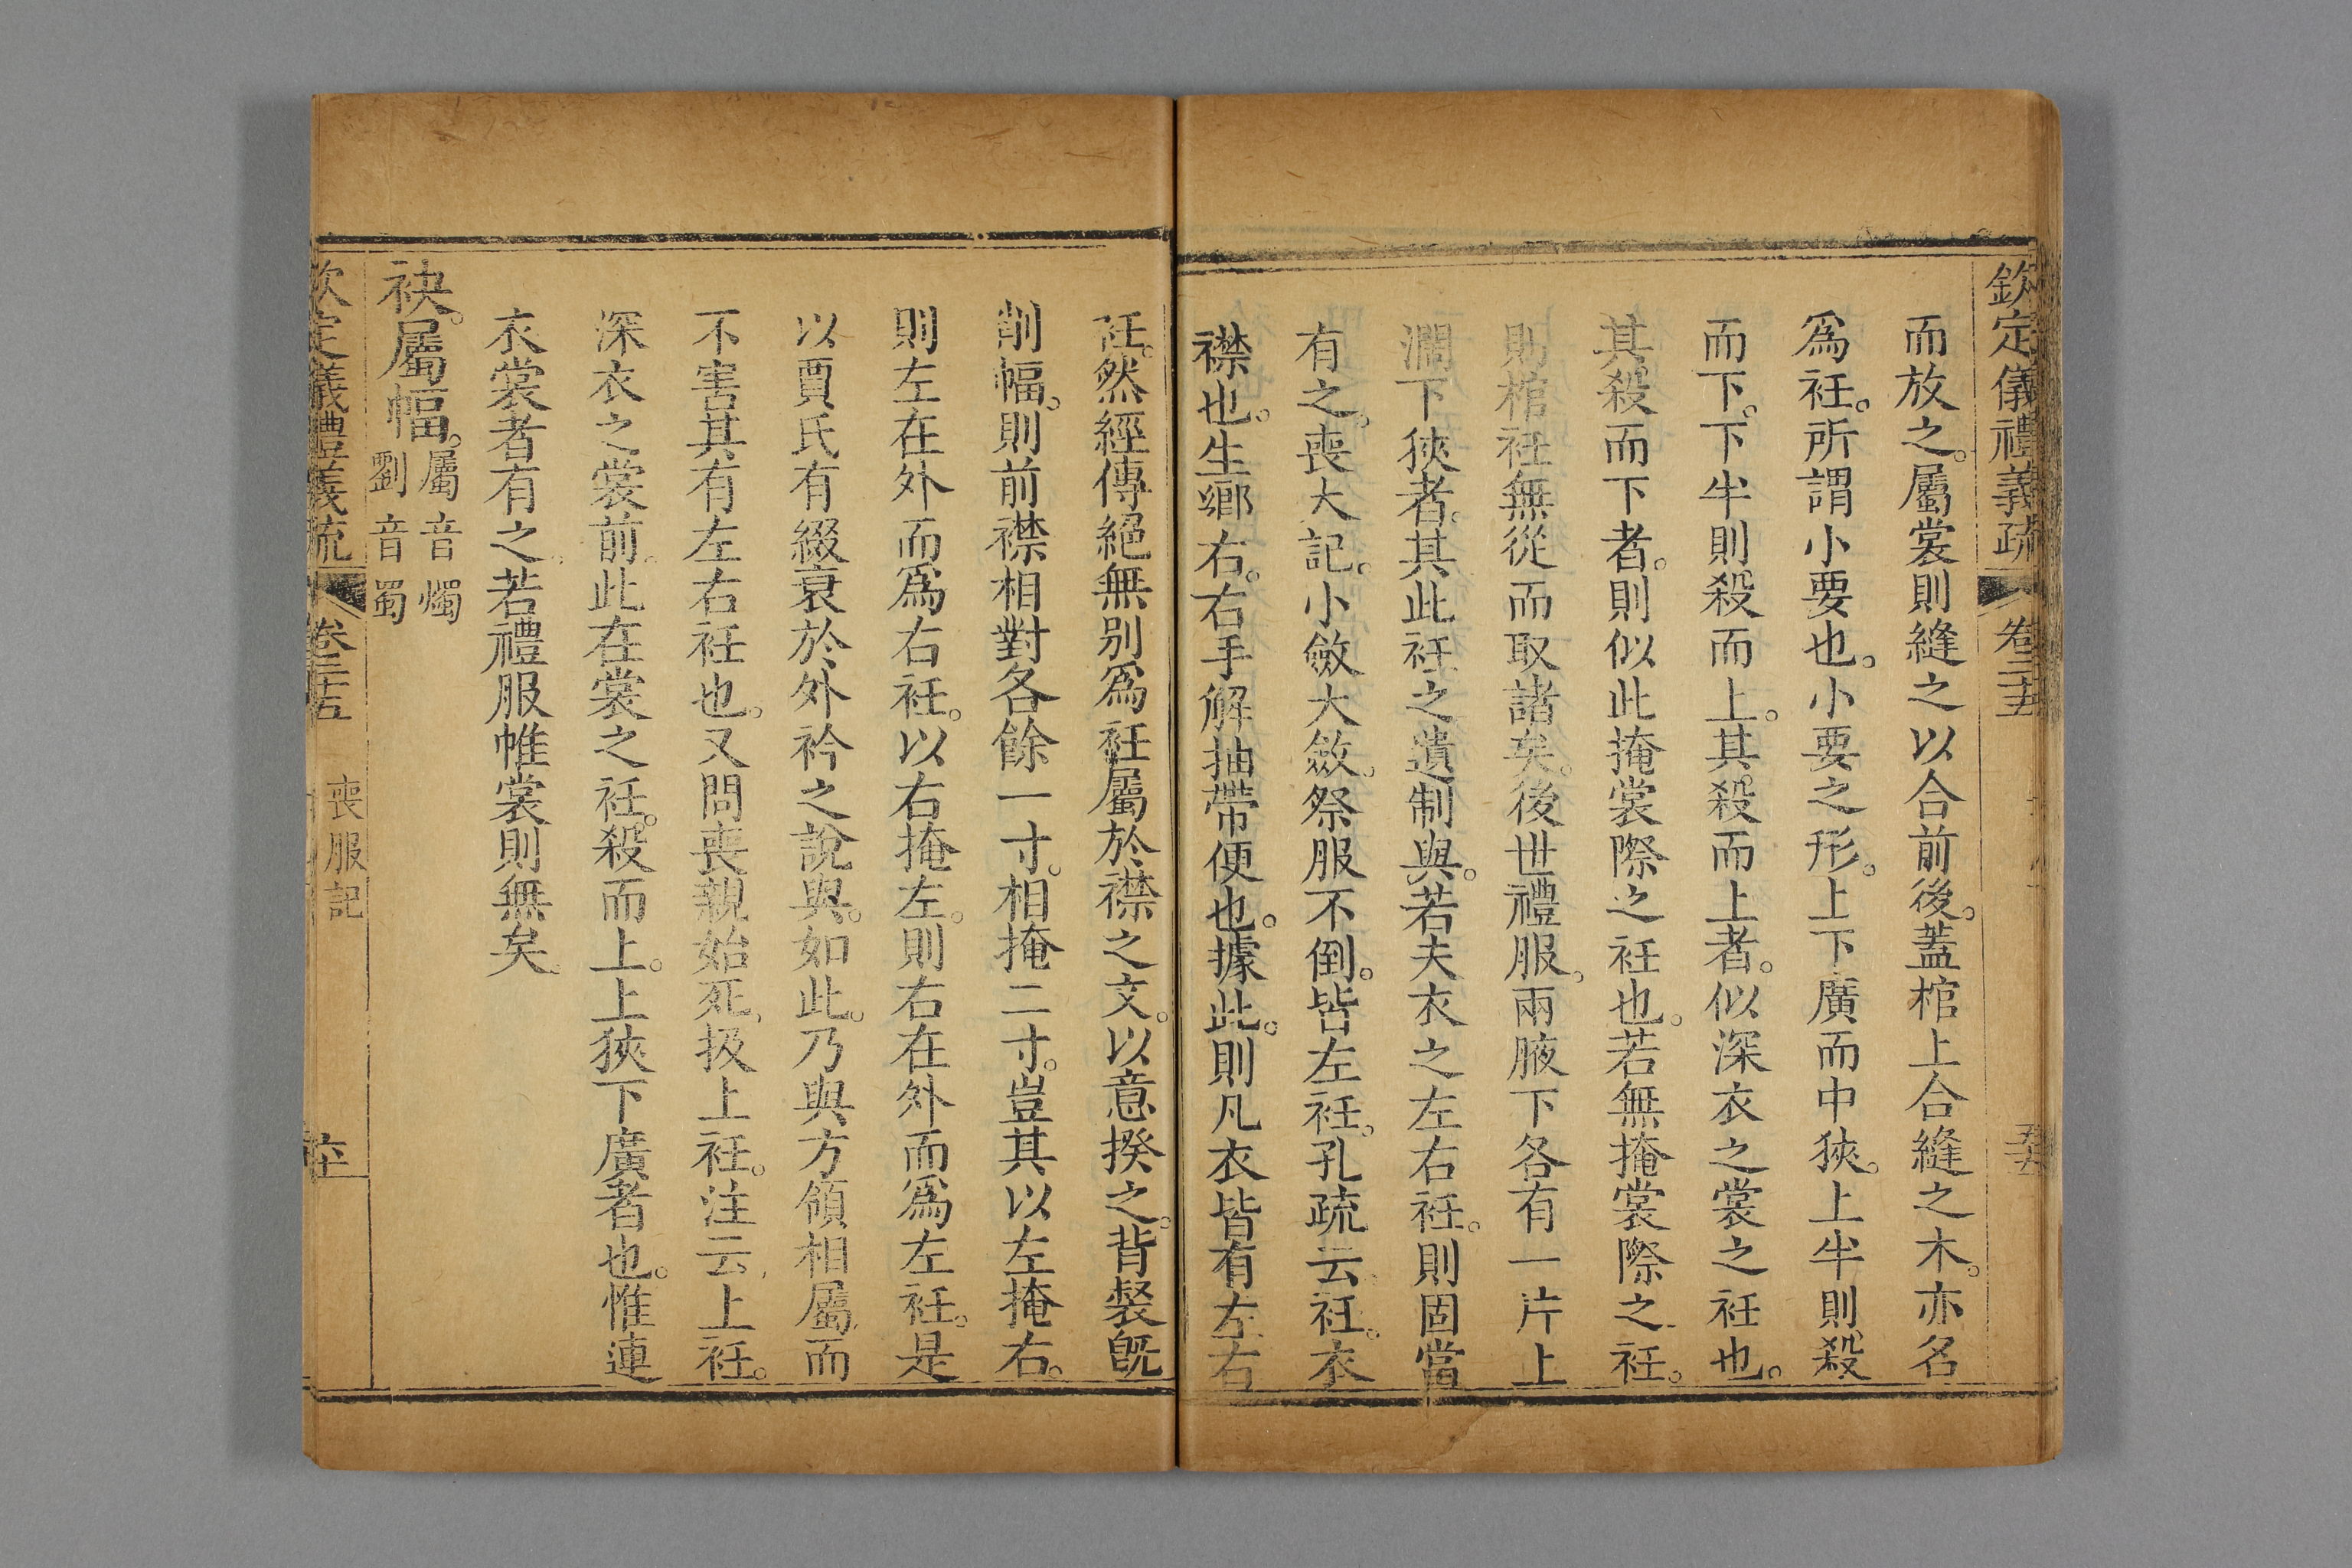 欽定儀禮義疏 卷二十五
而放之。屬裳則縫之以合前後。蓋棺上合縫之木。亦名
爲衽。所謂小要也。小要之形。上下廣而中狹。上半則殺
而下。下半則殺而上。其殺而上者。似深衣之裳之衽也。
其殺而下者。則似此掩裳際之衽也。若無掩裳際之衽。
則棺衽無從而取諸矣。後世禮服。兩腋下各有一片上
濶下狹者。其此衽之遺制與。若夫衣之左右衽。則固當
有之。喪大記。小斂大斂。祭服不倒。皆左衽。孔疏云。衽。衣
襟也。生鄉右。右手解抽帶便也。據此。則凡衣皆有左右
衽。然經傳絕無别爲衽屬於襟之文。以意揆之。背裻旣
削幅。則前襟相對各餘一寸。相掩二寸。豈其以左掩右。
則左在外而爲右衽。以右掩左。則右在外而爲左衽。是
以賈氏有綴衰於外衿之說與。如此。乃與方領相屬而
不害其有左右衽也。又問喪親始死。扱上衽。注云。上衽。
深衣之裳前。此在裳之衽。殺而上。上狹下廣者也。惟連
衣裳者有之。若禮服帷裳則無矣。
袂。屬幅。屬音燭
劉音蜀
欽定儀禮義疏 卷二十五 喪服記